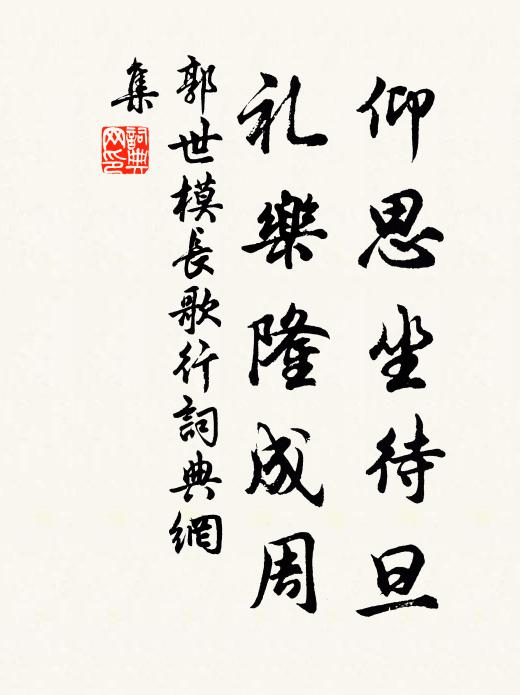 仰思坐待旦
礼樂隆成周
郭世模長歌行詞典網
集
詞典網印